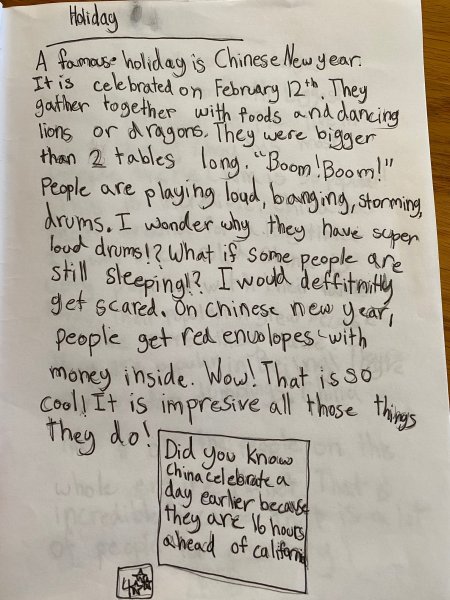 Holiday
A famous holiday is Chinese New year.
It is celebrated on February 12th. They
gather together with foods and dancing
lions or dragons. They were bigger
than 2 tables long. "Boom! Boom!"
People are playing loud, banging, storming,
drums. I wonder why they have super
loud drums!? What if some people are
still sleeping!? I would deffitnitly
get scared. On Chinese new year,
people get red envolopes with
money inside. Wow! That is so
cool! It is impresive all those things
they do!
Did you know
China celebrate a
day earlier because
they are 16 hours
ahead of california
4